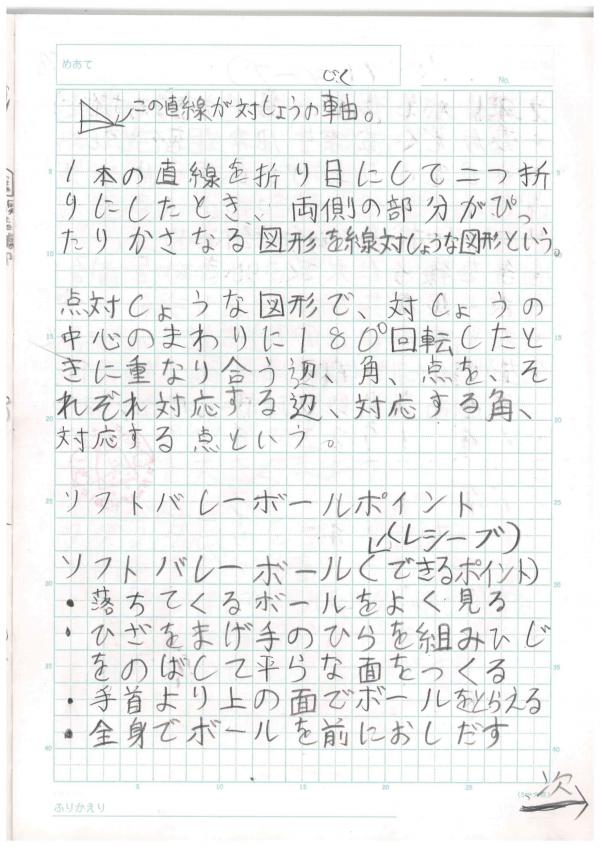 めあて
No.
じく
この直線が対しょうの軸。
1本の直線を折り目にして二つ折
りにしたとき、両側の部分がぴっ
たりかさなる図形を線対しょうな図形という。
点対しょうな図形で、対しょうの
中心のまわりに180°回転したと
きに重なり合う辺、角、点を、そ
れぞれ対応する辺、対応する角、
対応する点という。
ソフトバレーボールポイント
(レシーブ)
ソフトバレーボール(できるポイント)
・落ちてくるボールをよく見る
・ひざをまげ手のひらを組みひじ
をのばして平らな面をつくる
・手首より上の面でボールをとらえる
・全身でボールを前におしだす
次
ふりかえり